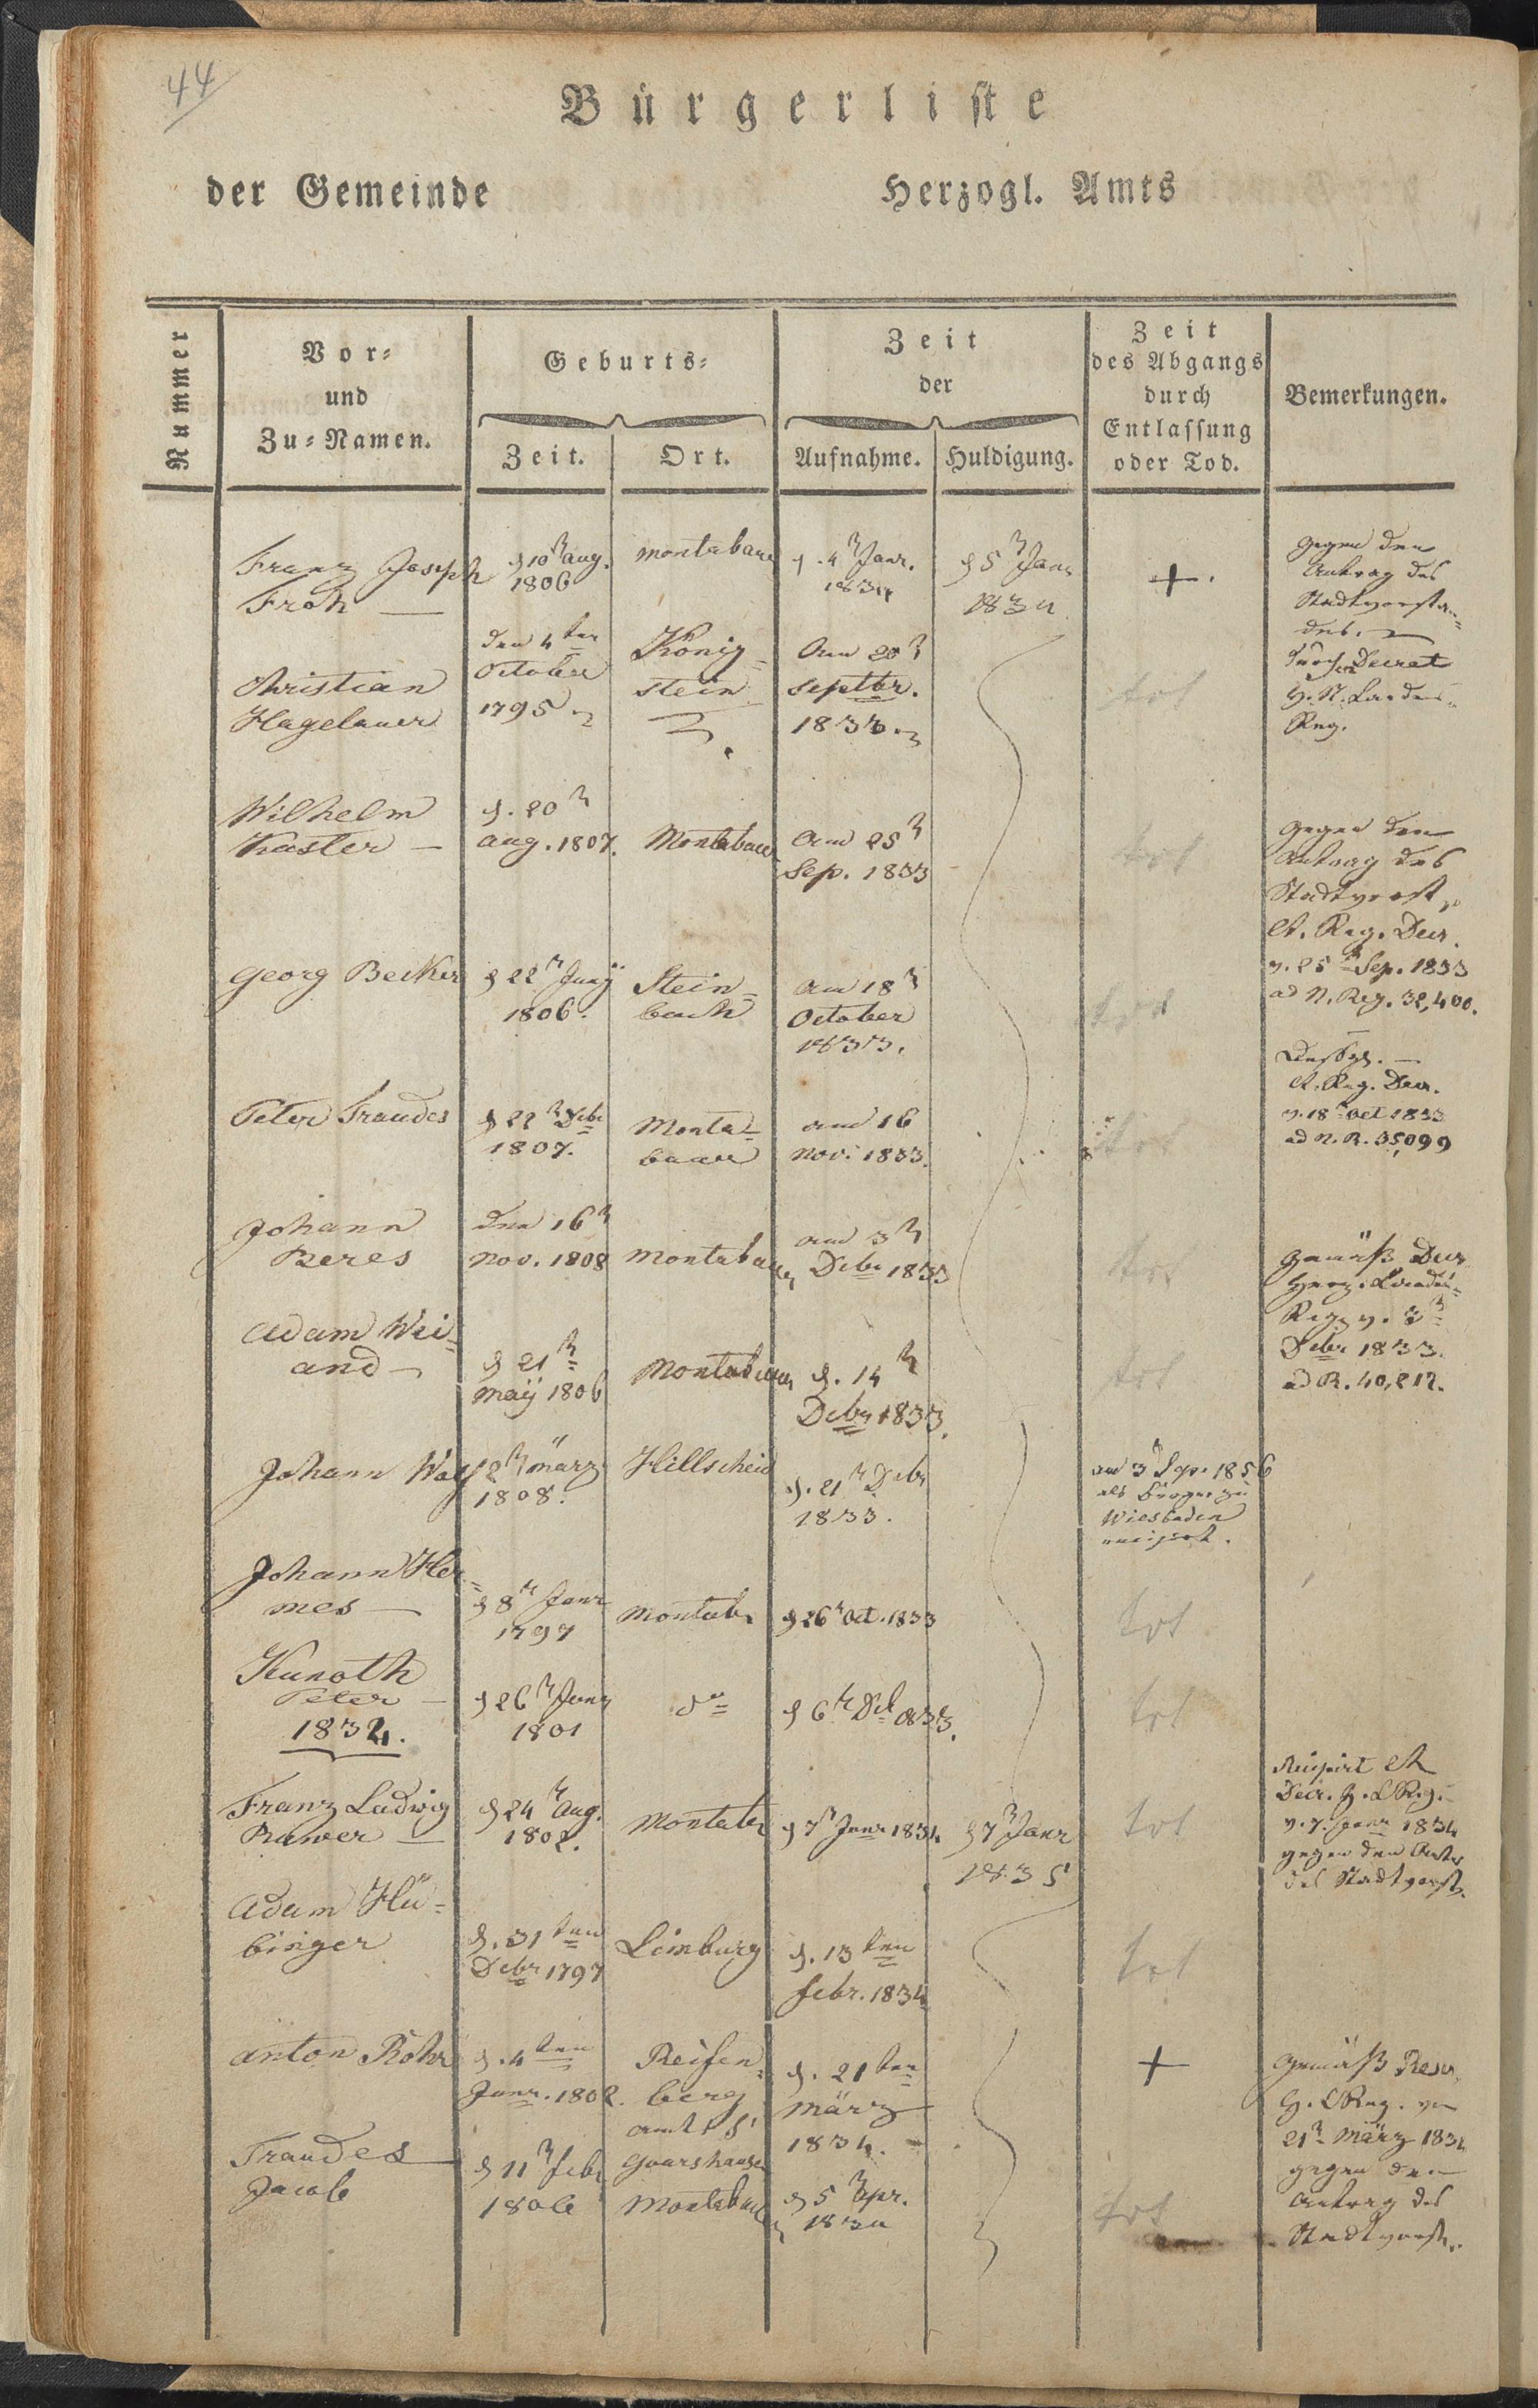 44
Bürgerliste
der Gemeinde Herzogl. Amts
Nummer
Vor-
und
Zu-Namen.
Geburts-
Zeit. Ort.
Zeit
der
Aufnahme. Huldigung.
Zeit
des Abgangs
durch
Entlassung
oder Tod.
Bemerkungen.
Franz Joseph
Froh —
d 10 Aug.
1806
Montabaur
d. 4 Janr.
1834
d 5 Janr
1834
+.
gegen den
Antrag des
Stadtvorstan-
des.
Christian
Hagelauer
den 4ten
October
1795
König-
stein
Am 20
Septbr.
1833.
tot
durch Decret
H. N. Landes-
Reg.
Wilhelm
Kaster —
d. 20
Aug. 1807.
Montabaur
Am 25
Sep. 1833
tot
gegen den
Antrag des
Stadtvorst.
Reg. Decr.
v. 25 Sep. 1833
ad N. Reg. 32,400.
Georg Becker
d 22 Junÿ
1806.
Stein-
bach
am 18
October
1833.
tot
Desgl. —
Reg. Decr.
v. 18 Oct 1833
ad N. R. 35,099
Peter Fraudes
d 22 Debr
1807.
Monta-
baur
am 16
Nov. 1833.
tot
Johann
Beres
den 16
Nov. 1808
Montabaur
am 3
Debr 1833
tot
gemäß Decr
Herz. Landes-
Reg. v. 3
Debr 1833.
ad R. 40,212.
Adam Wei-
and —
d 21
Maÿ 1806
Montabaur
d. 14
Debr 1833.
tot
Johann Wolf
2 März
1808.
Hillscheid
d. 21 Debr
1833.
am 3 Sep. 1856
als Bürger zu
Wiesbaden
recipirt.
Johann Her-
mes —
d 8 Janr
1797
Montabr
d 26 Oct. 1833
tot
Kunoth
Peter —
d 26 Janr
1801
do
d 6 Dec 833.
tot
1834.
Franz Ludwig
Brawer —
d 24 Aug.
1802.
Montabr
d 7 Janr 1834
d 7 Janr
1835
tot
Recipirt
Decr. H. L Reg.
v. 7. Janr 1834
gegen den Antr
des Stadtvorst.
Adam Hü-
binger
d. 31ten
Debr 1797
Limburg
d. 13ten
Febr. 1834
tot
Anton Rohr
d. 4ten
Janr. 1802.
Reifen-
berg
Amts St
Goarshausen
d. 21ten
März
1834.
+
gemäß Rescr.
H. L Reg. vom
21 März 1834
gegen den
Antrag des
Stadtvorst.
Fraudes
Jacob
d 11 Febr
1806
Montabaur
d 5 Apr.
1834
tot